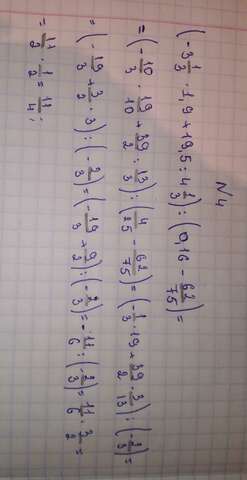 N4
(-3 1/3 · 1,9 + 19,5 : 4 1/3) : (0,16 - 62/75) =
= (-10/3 · 19/10 + 39/2 : 13/3) : (4/25 - 62/75) = (-1/3 · 19 + 39/2 · 3/13) : (-2/3) =
= (-19/3 + 3/2 · 3) : (-2/3) = (-19/3 + 9/2) : (-2/3) = -11/6 : (-2/3) = 11/6 · 3/2 =
= 11/2 · 1/2 = 11/4;